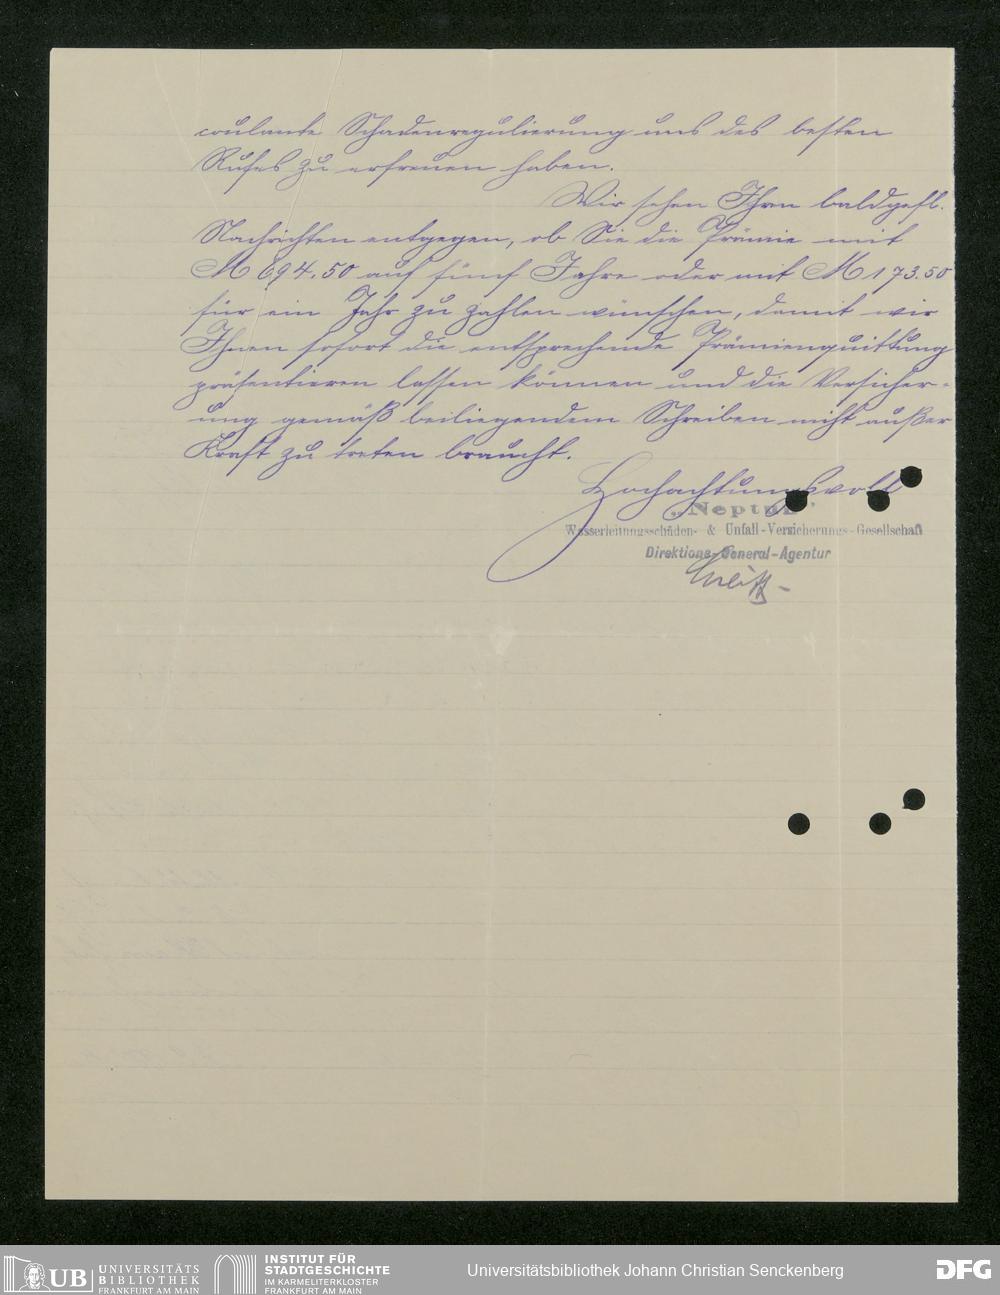 coulante Schadenregulierung uns des besten
Rufes zu erfreuen haben.
Wir sehen Ihren baldgefl.
Nachrichten entgegen, ob Sie die Prämie mit
M 694.50 auf fünf Jahre oder mit M 173.50
für ein Jahr zu zahlen wünschen, damit wir
Ihnen sofort die entsprechende Prämienquittung
präsentieren lassen können und die Versicher-
ung gemäß beiliegendem Schreiben nicht außer
Kraft zu treten braucht.
Hochachtungsvoll
„Neptun"
Wasserleitungsschäden- & Unfall-Versicherungs-Gesellschaft
Direktions-General-Agentur
UB UNIVERSITÄTS BIBLIOTHEK FRANKFURT AM MAIN
INSTITUT FÜR STADTGESCHICHTE IM KARMELITERKLOSTER FRANKFURT AM MAIN
Universitätsbibliothek Johann Christian Senckenberg
DFG